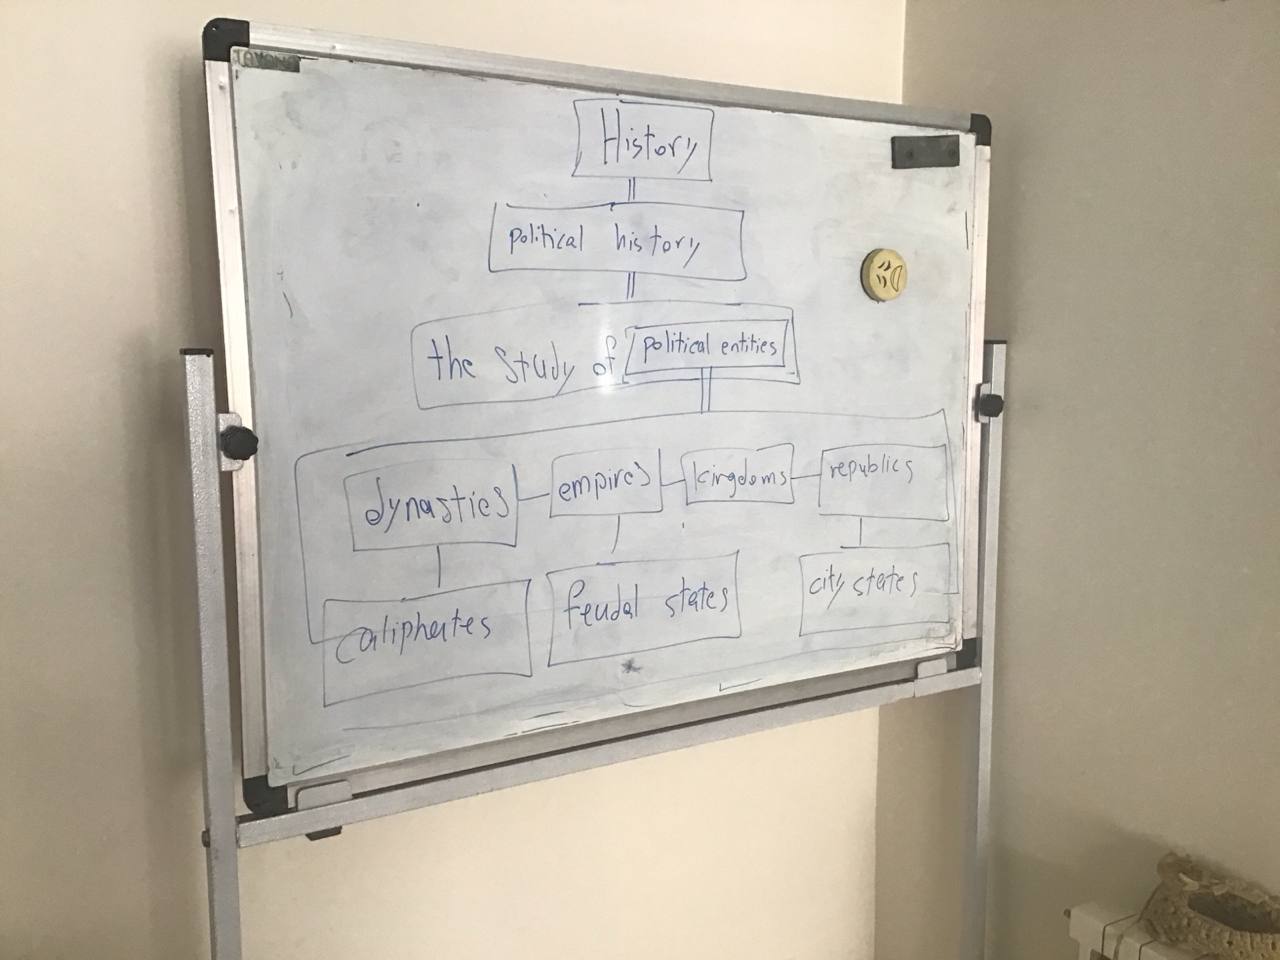 History
political history
the study of political entities
dynasties empires kingdoms republics
caliphates feudal states city states